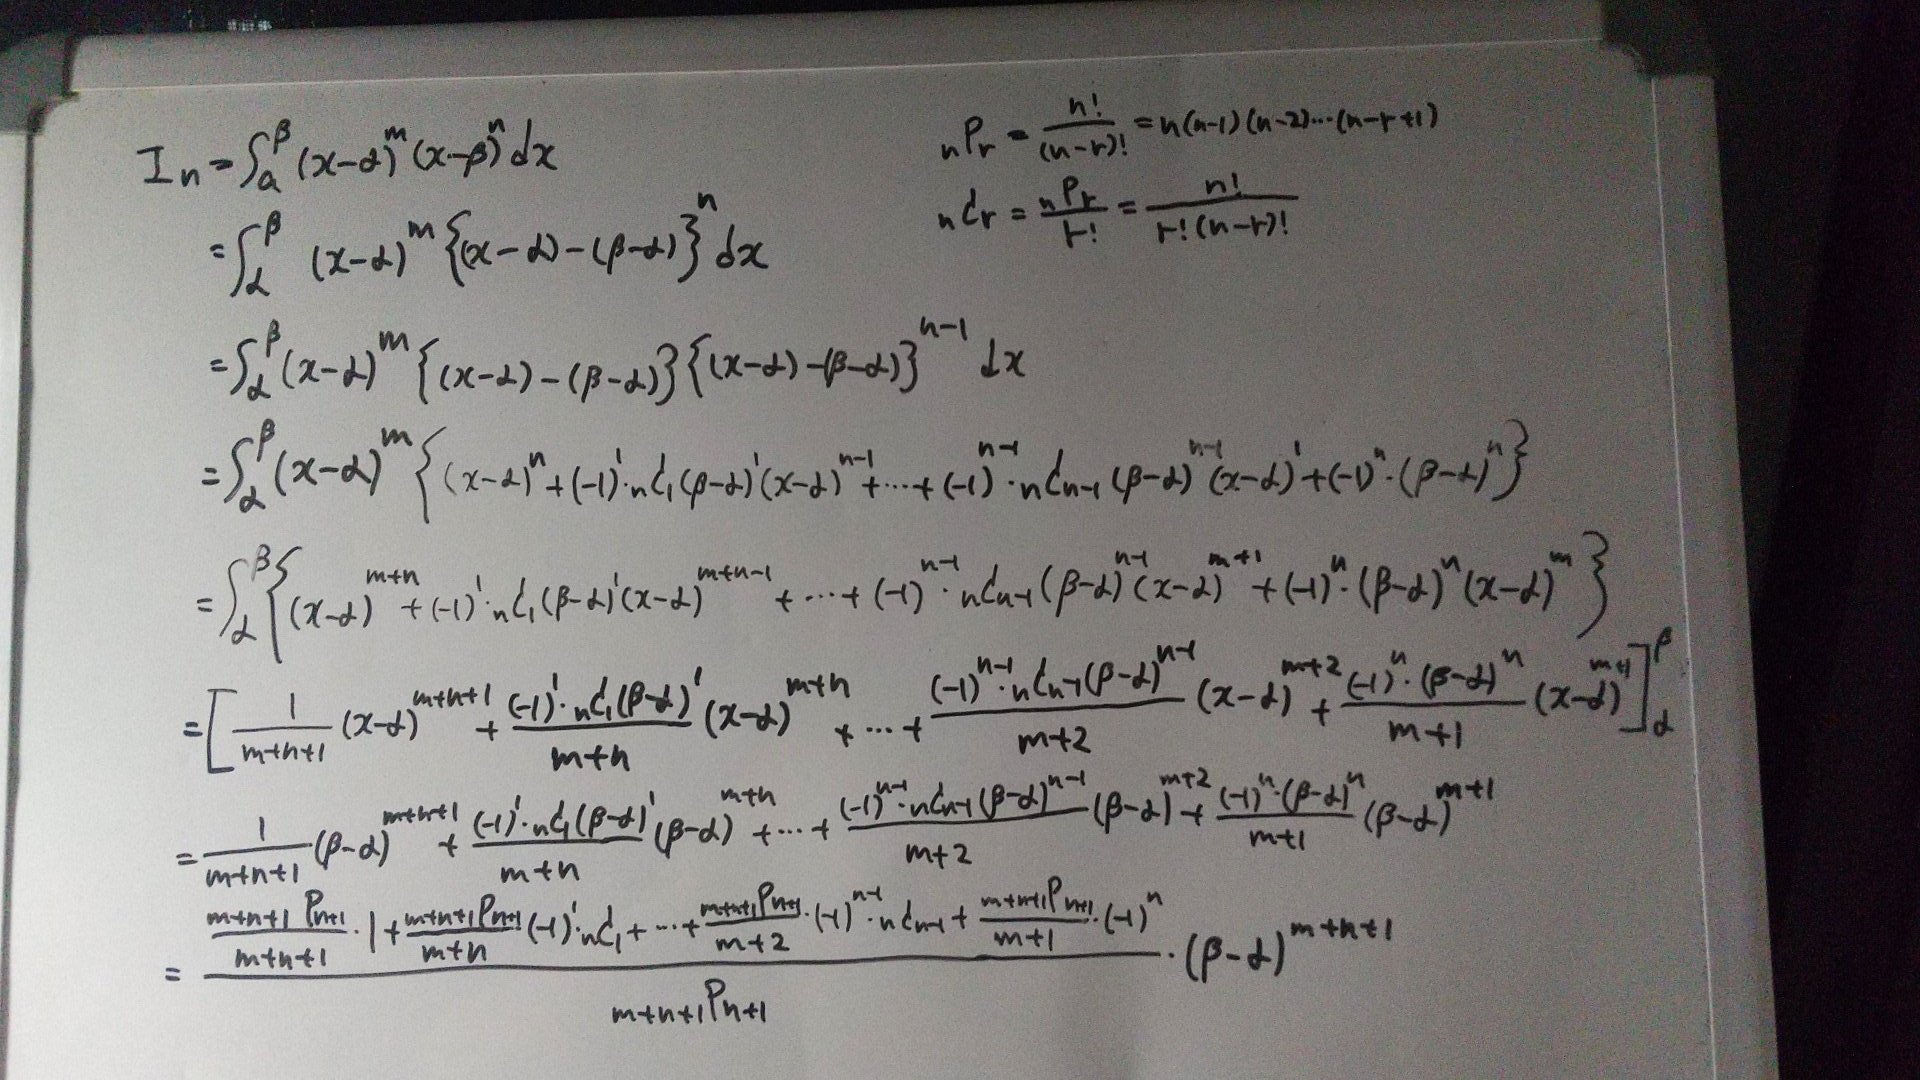 Iₙ = ∫ₐ^β (x-α)^m (x-β)^n dx
ₙPᵣ = n!/(n-r)! = n(n-1)(n-2)⋯(n-r+1)
= ∫_α^β (x-α)^m {(x-α)-(β-α)}^n dx
ₙCᵣ = ₙPᵣ/r! = n!/(r!(n-r)!)
= ∫_α^β (x-α)^m {(x-α)-(β-α)}{(x-α)-(β-α)}^(n-1) dx
= ∫_α^β (x-α)^m {(x-α)^n + (-1)^1·ₙC₁(β-α)^1(x-α)^(n-1) + ⋯ + (-1)^(n-1)·ₙCₙ₋₁(β-α)^(n-1)(x-α)^1 + (-1)^n·(β-α)^n}
= ∫_α^β {(x-α)^(m+n) + (-1)^1·ₙC₁(β-α)^1(x-α)^(m+n-1) + ⋯ + (-1)^(n-1)·ₙCₙ₋₁(β-α)^(n-1)(x-α)^(m+1) + (-1)^n·(β-α)^n(x-α)^m}
= [1/(m+n+1) (x-α)^(m+n+1) + (-1)^1·ₙC₁(β-α)^1/(m+n) (x-α)^(m+n) + ⋯ + (-1)^(n-1)·ₙCₙ₋₁(β-α)^(n-1)/(m+2) (x-α)^(m+2) + (-1)^n·(β-α)^n/(m+1) (x-α)^(m+1)]_α^β
= 1/(m+n+1) (β-α)^(m+n+1) + (-1)^1·ₙC₁(β-α)^1/(m+n) (β-α)^(m+n) + ⋯ + (-1)^(n-1)·ₙCₙ₋₁(β-α)^(n-1)/(m+2) (β-α)^(m+2) + (-1)^n·(β-α)^n/(m+1) (β-α)^(m+1)
= (ₘ₊ₙ₊₁Pₙ₊₁/(m+n+1)·1 + ₘ₊ₙ₊₁Pₙ₊₁/(m+n)(-1)^1·ₙC₁ + ⋯ + ₘ₊ₙ₊₁Pₙ₊₁/(m+2)·(-1)^(n-1)·ₙCₙ₋₁ + ₘ₊ₙ₊₁Pₙ₊₁/(m+1)·(-1)^n)/ₘ₊ₙ₊₁Pₙ₊₁ · (β-α)^(m+n+1)